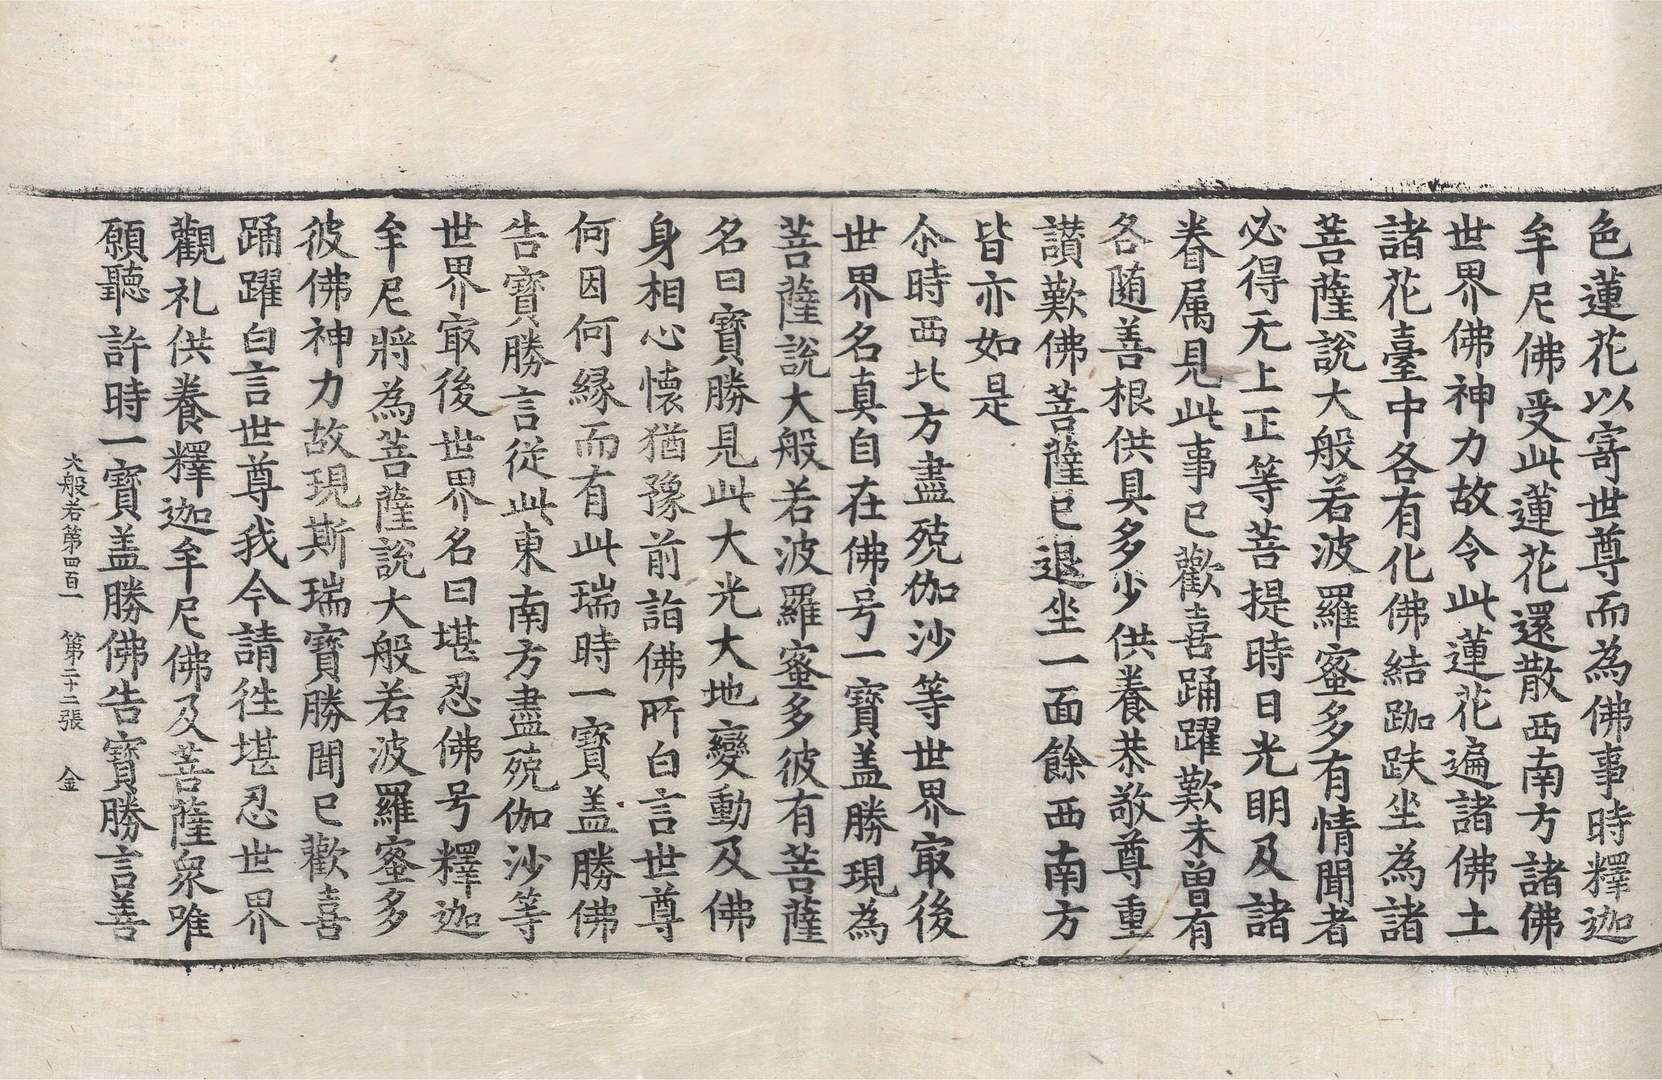 色蓮花以寄世尊而為佛事時釋迦
牟尼佛受此蓮花還散西南方諸佛
世界佛神力故令此蓮花遍諸佛土
諸花臺中各有化佛結跏趺坐為諸
菩薩說大般若波羅蜜多有情聞者
必得无上正等菩提時日光明及諸
眷属見此事已歡喜踊躍歎未曾有
各随善根供具多少供養恭敬尊重
讃歎佛菩薩已退坐一面餘西南方
皆亦如是
尒時西北方盡殑伽沙等世界㝡後
世界名真自在佛号一寶盖勝現為
菩薩說大般若波羅蜜多彼有菩薩
名曰寶勝見此大光大地變動及佛
身相心懷猶豫前詣佛所白言世尊
何因何縁而有此瑞時一寶盖勝佛
告寶勝言從此東南方盡殑伽沙等
世界㝡後世界名曰堪忍佛号釋迦
牟尼將為菩薩說大般若波羅蜜多
彼佛神力故現斯瑞寶勝聞已歡喜
踊躍白言世尊我今請徃堪忍世界
觀礼供養釋迦牟尼佛及菩薩衆唯
願聽許時一寶盖勝佛告寶勝言善
大般若第四百一 第二十二張 金